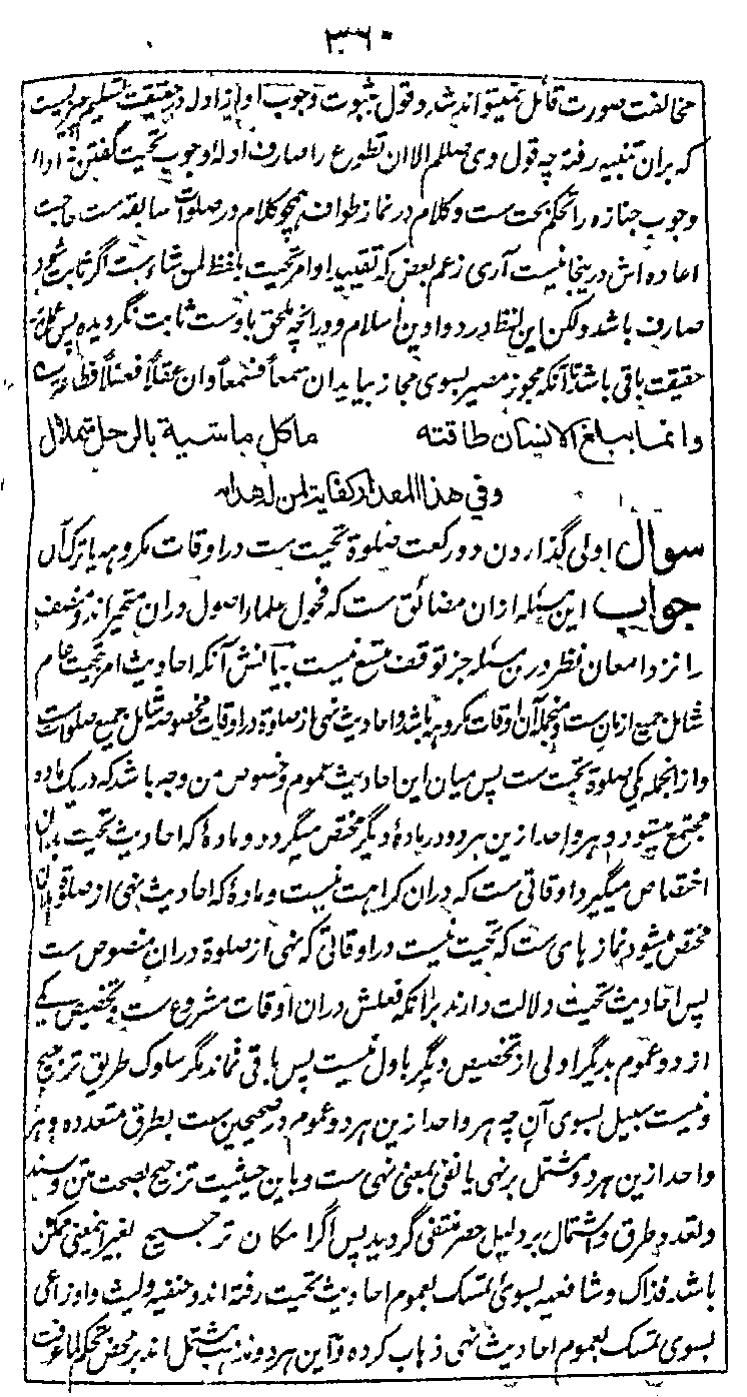 ۳۶۰
مخالفت صورت قائل نمیتواند شد و قول بثبوت وجوب او از ادله در حقیقت تسلیم چیزیست
که بران تنبیه رفته چه قول وی صلعم الا ان تطوع را صارف ادلهٔ وجوب تحیت گفتن نه ادلهٔ
وجوب جنازه را تحکم بحت ست و کلام در نماز طواف همچو کلام در صلوات سابقه ست حاجت
اعاده اش درینجا نیست آری زعم بعض که تقیید اوامر تحیت بلفظ لمن شاء ست اگر ثابت شود
صارف باشد ولکن این لفظ در دواوین اسلام و در آنچه ملحق باوست ثابت نگردیده پس عمل بر
حقیقت باقی باشد تا آنکه مجوز مصیر بسوی مجاز بیاید ان سمعاً فسمعاً وان عقلاً فعقلاً فظاهر
وانما یبلغ الانسان طاقته ماکل ماشیة بالرحل شملال
وفی هذا المقدار کفایة لمن له هدایه
سوال اولی گذاردن دو رکعت صلوة تحیت ست در اوقات مکروهه یا ترک آن
جواب این مسئله ازان مضائق ست که فحول علماء اصول دران متحیر اند و منصف
را نزد امعان نظر درین مسئله جز توقف متسع نیست بیانش آنکه احادیث امر تحیت عام
شامل جمیع ازمان ست و منجمله آن اوقات مکروهه باشد و احادیث نهی از صلوة در اوقات مخصوصه شامل جمیع صلوات ست
و ازانجمله یکی صلوة تحیت ست پس میان این احادیث عموم و خصوص من وجه باشد که در یک ماده
مجتمع میشود و هر واحد ازین هر دو در مادهٔ دیگر مختص میگردد و مادهٔ که احادیث تحیت بدان
اختصاص میگیرد اوقاتی ست که دران کراهت نیست و مادهٔ که احادیث نهی از صلوة بدان
مختص میشود نماز های ست که تحیت نیست در اوقاتی که نهی از صلوة دران منصوص ست
پس احادیث تحیت دلالت دارند برانکه فعلش دران اوقات مشروع ست و تخصیص یکی
از دو عموم بدیگر اولی از تخصیص دیگر باول نیست پس باقی نماند مگر سلوک طریق ترجیح
و نیست سبیل بسوی آن چه هر واحد ازین هر دو عموم در صحیحین ست بطرق متعدده و هر
واحد ازین هر دو مشتمل بر نهی یا نفی بمعنی نهی ست و باین حیثیت ترجیح بصحت متن و سند
و تعدد طرق و اشتمال بر دلیل حصر منتفی گردید پس اگر امکان ترجیح بغیر این معنی ممکن
باشد فذاک و شافعیه بسوی تمسک بعموم احادیث تحیت رفته اند و حنفیه ولیث و اوزاعی
بسوی تمسک بعموم احادیث نهی ذهاب کرده و این هر دو مذهب مشتمل اند بر محض تحکم لما عرفت